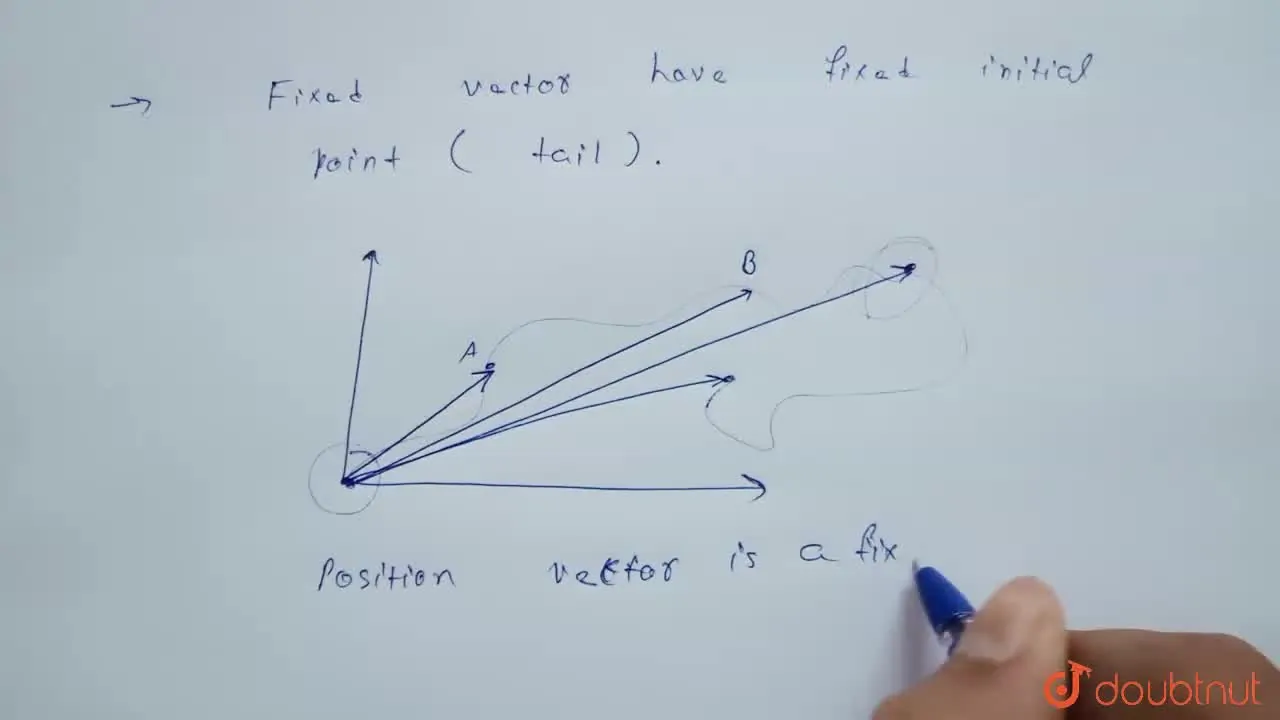 → Fixed vector have fixed initial
point ( tail ).
A
B
Position vector is a fix
doubtnut